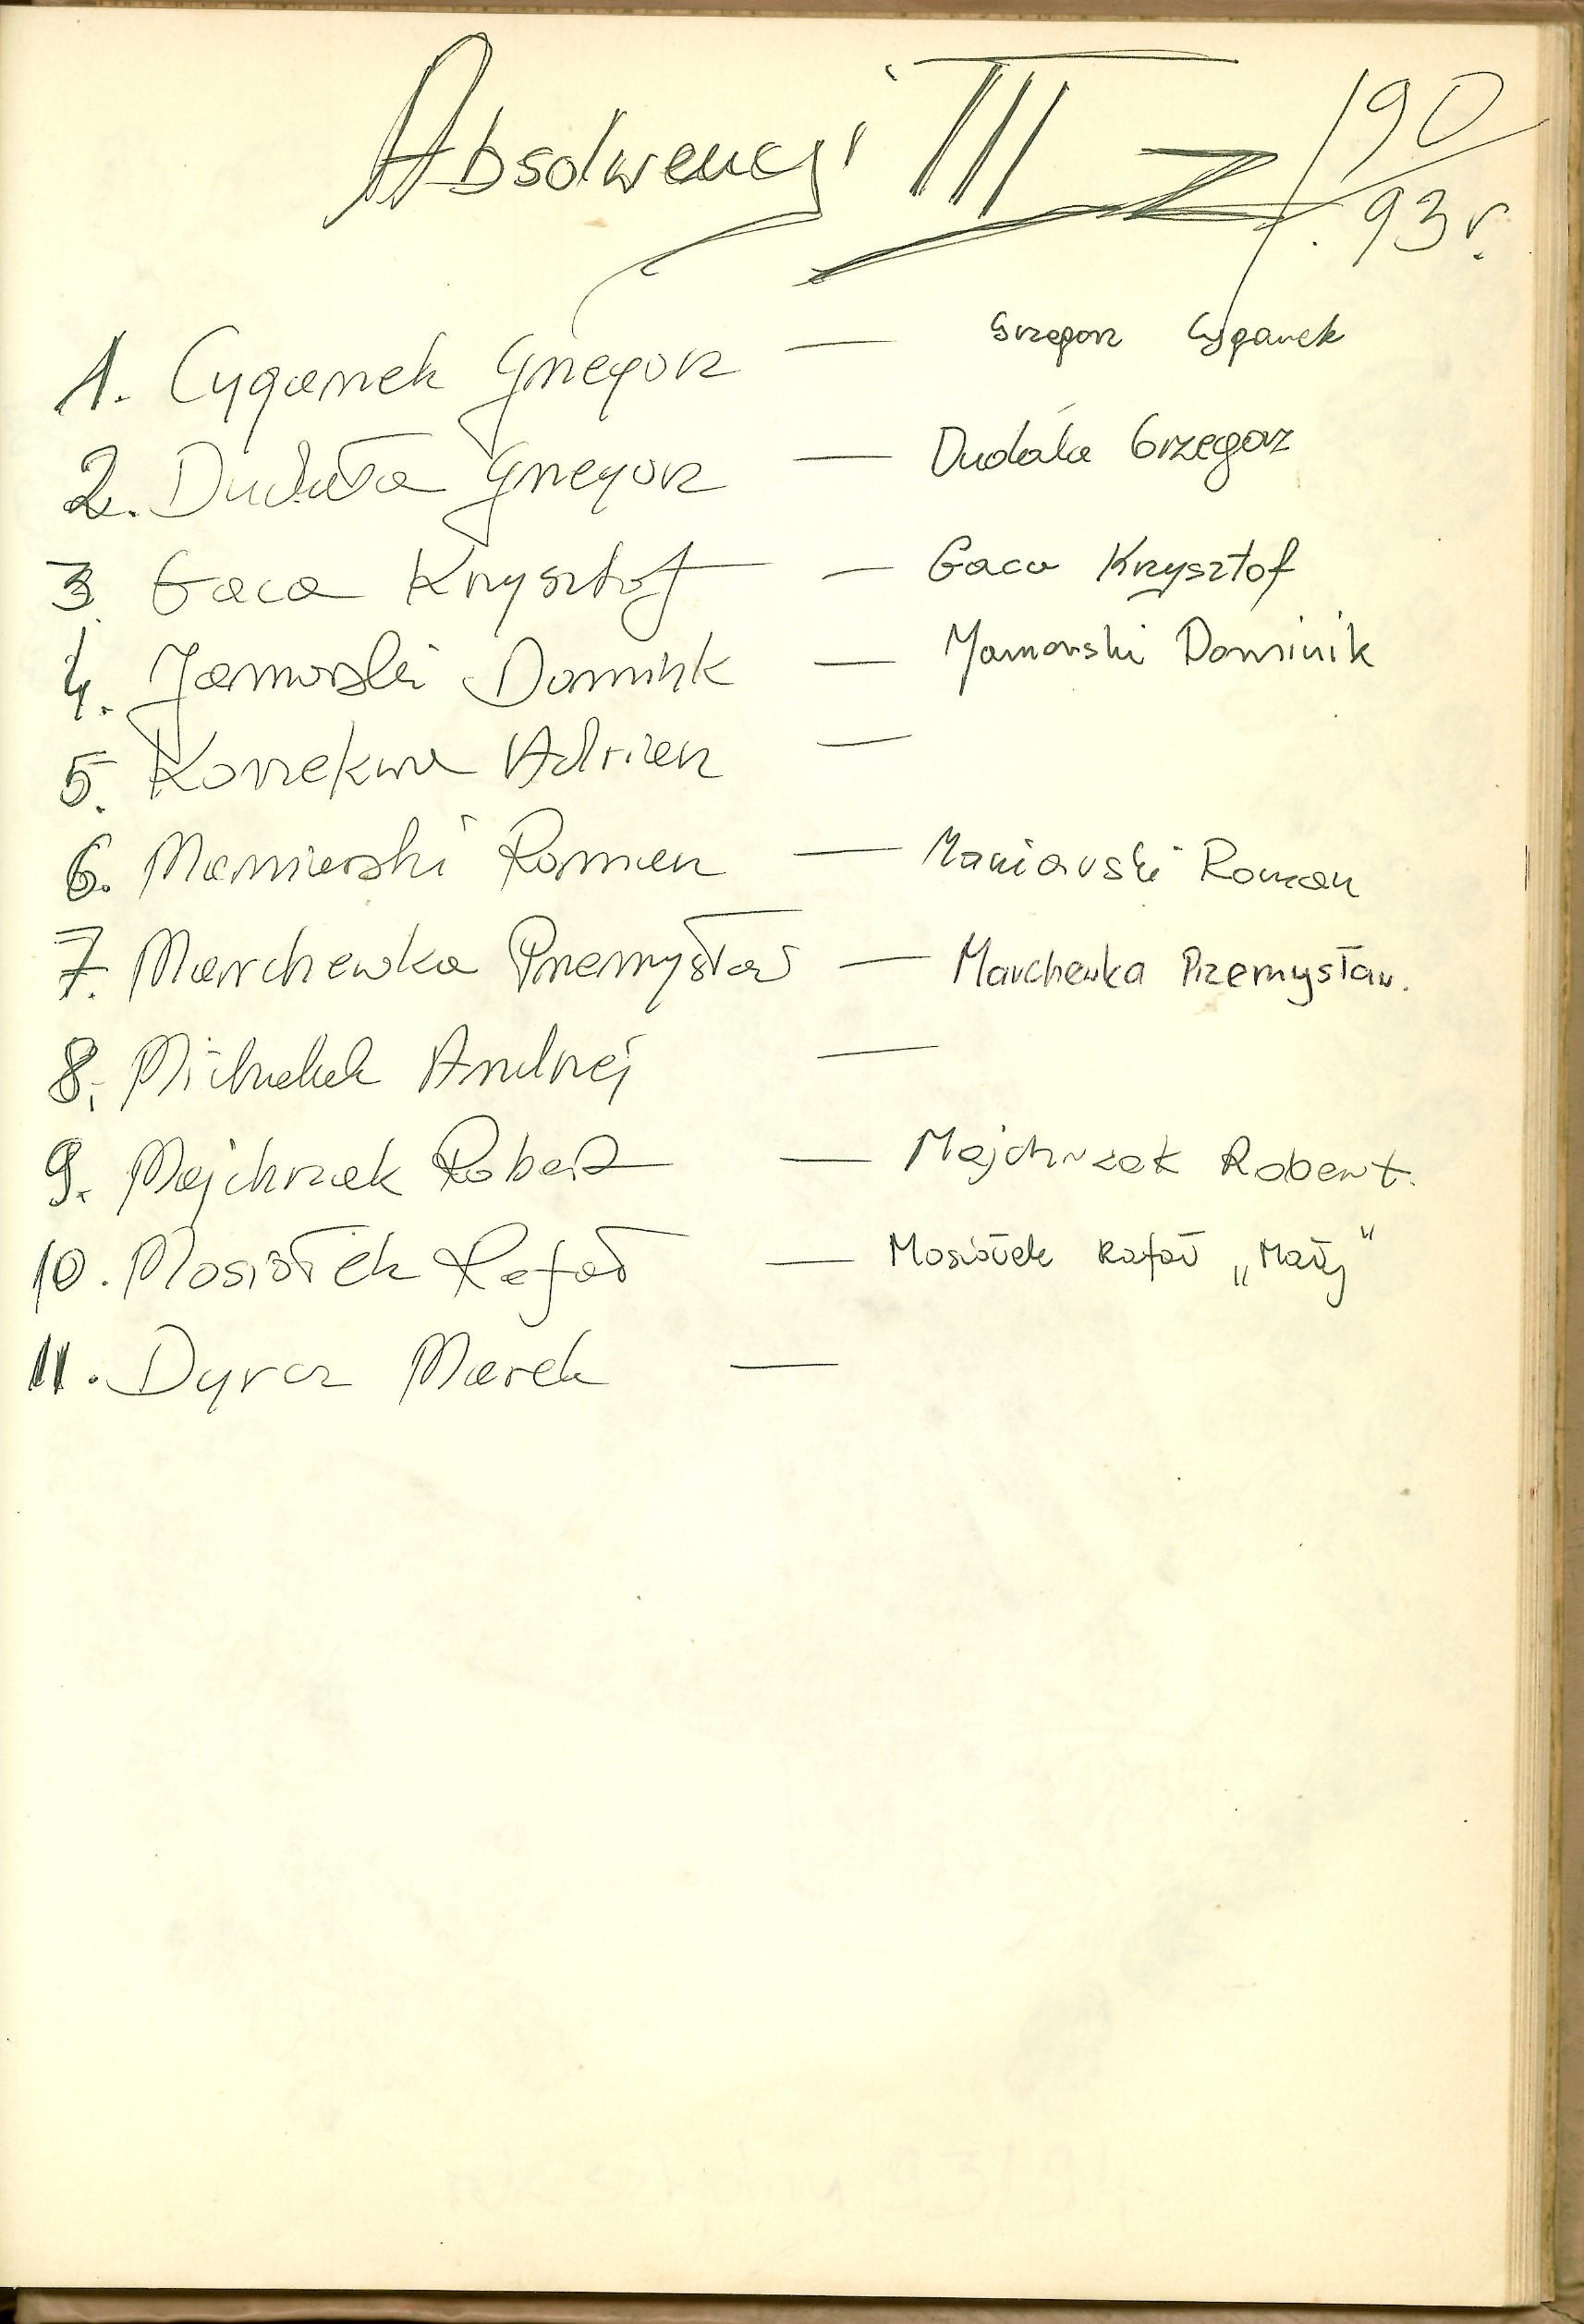 Absolwenci III Z 90/93 r.
1. Cyganek Grzegorz — Grzegorz Cyganek
2. Dudała Grzegorz — Dudała Grzegorz
3. Gaca Krzysztof — Gaca Krzysztof
4. Jamorski Dominik — Jamorski Dominik
5. Adrian —
6. Maniarski Roman — Maniarski Roman
7. Marchewka Przemysław — Marchewka Przemysław.
8. Michalak Andrzej —
9. Majchrzak Robert — Majchrzak Robert.
10. Mosiołek Rafał — Mosiołek Rafał „Mały”
11. Dyrcz Marek —